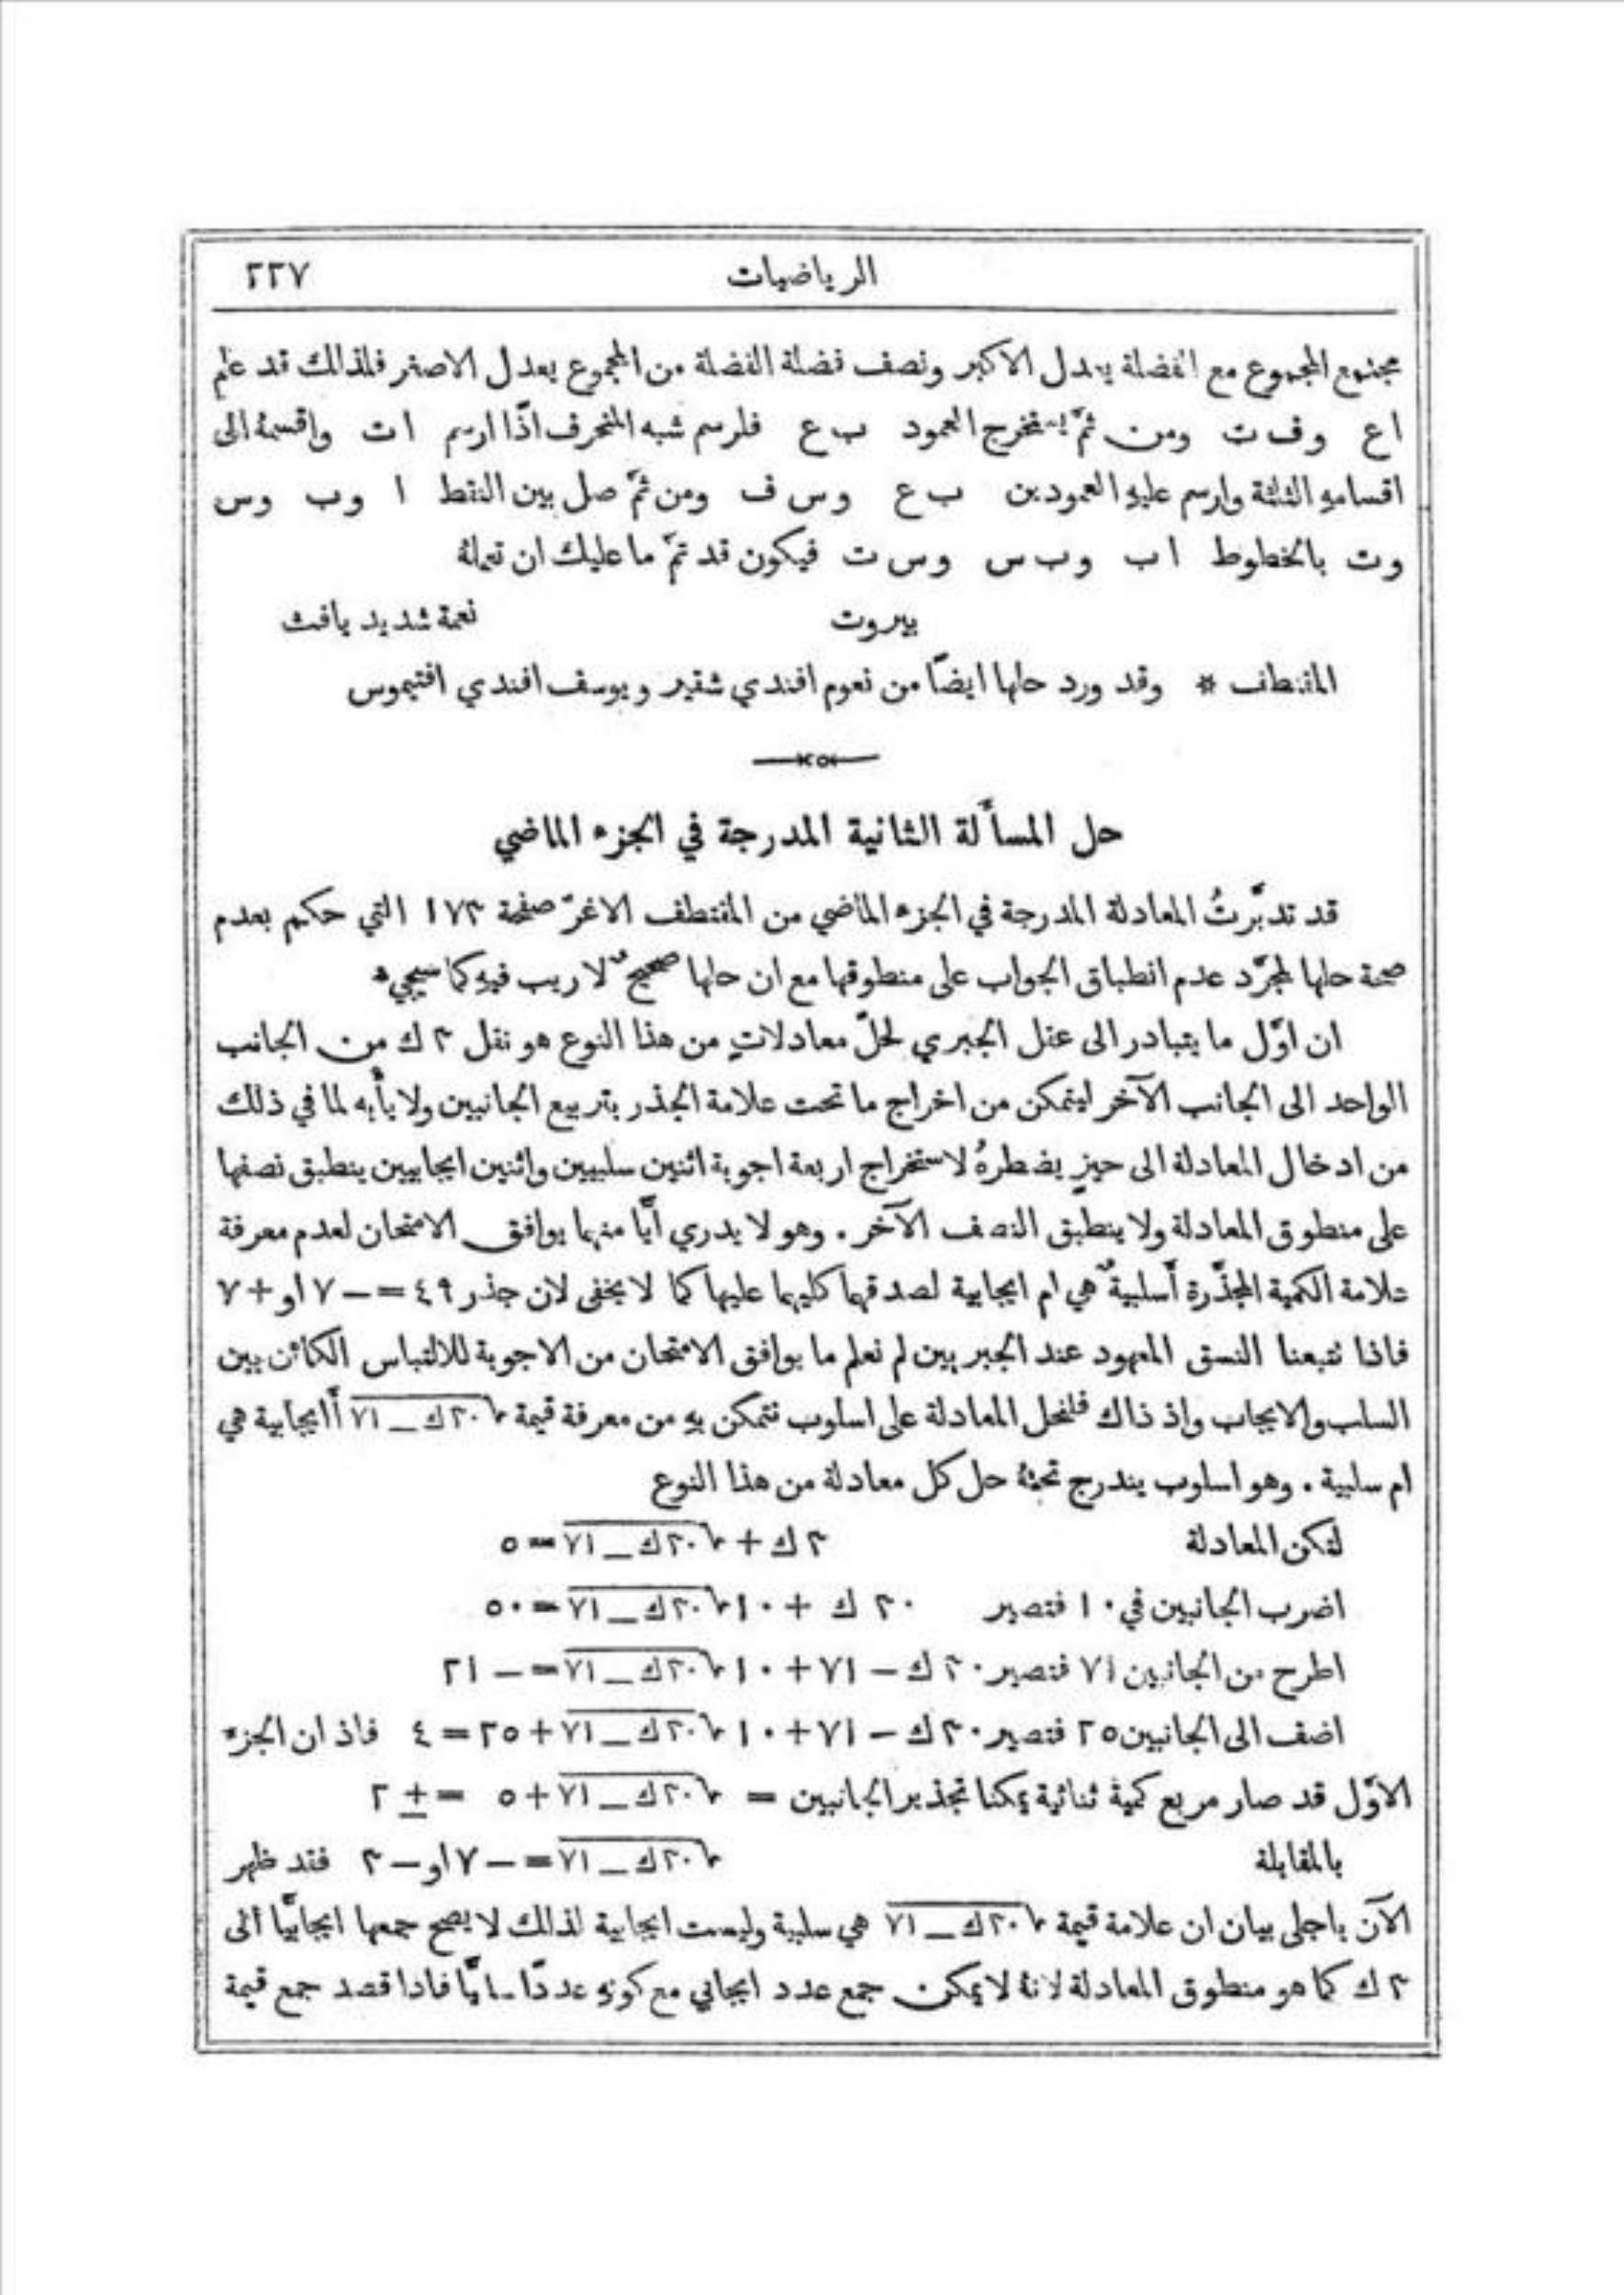 الرياضيات ٢٢٧
مجتمع المجموع مع الفضلة يعدل الاكبر ونصف فضلة الفضلة من المجموع يعدل الاصغر فلذلك قد علم
اع وف ت ومن ثمَّ يستخرج العمود ب ع فلرسم شبه المنحرف اذًا ارسم ات واقسمهُ الى
اقسامهِ الثلثة وارسم عليهِ العمودين ب ع وس ف ومن ثمَّ صل بين النقط ا وب وس
وت بالخطوط اب وب س وس ت فيكون قد تمَّ ما عليك ان تعملهُ
بيروت نعمة شديد يافث
المقتطف * وقد ورد حلها ايضًا من نعوم افندي شقير ويوسف افندي افتيموس
حل المسأَلة الثانية المدرجة في الجزء الماضي
قد تدبَّرتُ المعادلة المدرجة في الجزء الماضي من المقتطف الاغرّ صفحة ١٧٣ التي حكم بعدم
صحة حلها لمجرَّد عدم انطباق الجواب على منطوقها مع ان حلها صحيحٌ لا ريب فيهِ كما سيجيء
ان اوَّل ما يتبادر الى عقل الجبري لحلّ معادلاتٍ من هذا النوع هو نقل ٣ ك من الجانب
الواحد الى الجانب الآخر ليتمكن من اخراج ما تحت علامة الجذر بتربيع الجانبين ولا يأبه لما في ذلك
من ادخال المعادلة الى حيزٍ يضطرهُ لاستخراج اربعة اجوبة اثنين سلبيين واثنين ايجابيين ينطبق نصفها
على منطوق المعادلة ولا ينطبق النصف الآخر. وهو لا يدري أيًّا منهما يوافق الامتحان لعدم معرفة
علامة الكمية المجذَّرة أسلبيةٌ هي ام ايجابية لصدقهما كليهما عليها كما لا يخفى لان جذر ٤٩ = — ٧ او + ٧
فاذا تتبعنا النسق المعهود عند الجبريين لم نعلم ما يوافق الامتحان من الاجوبة للالتباس الكائن بين
السلب والايجاب واذ ذاك فلنحل المعادلة على اسلوب نتمكن بهِ من معرفة قيمة √٣٠ك — ٧١ أايجابية هي
ام سلبية. وهو اسلوب يندرج تحتهُ حل كل معادلة من هذا النوع
لتكن المعادلة ٣ ك + √٣٠ك — ٧١ = ٥
اضرب الجانبين في ١٠ فتصير ٣٠ ك + ١٠√٣٠ك — ٧١ = ٥٠
اطرح من الجانبين ٧١ فتصير ٣٠ ك — ٧١ + ١٠√٣٠ك — ٧١ = — ٢١
اضف الى الجانبين ٢٥ فتصير ٣٠ ك — ٧١ + ١٠√٣٠ك — ٧١ + ٢٥ = ٤ فاذ ان الجزء
الاوَّل قد صار مربع كمية ثنائية يمكنا تجذير الجانبين = √٣٠ك — ٧١ + ٥ = ± ٢
بالمقابلة √٣٠ك — ٧١ = — ٧ او — ٣ فقد ظهر
الآن باجلى بيان ان علامة قيمة √٣٠ك — ٧١ هي سلبية وليست ايجابية لذلك لا يصح جمعها ايجابيًّا الى
٣ ك كما هو منطوق المعادلة لانهُ لا يمكن جمع عدد ايجابي مع كونهِ عددًا سلبيًّا فاذا قصد جمع قيمة